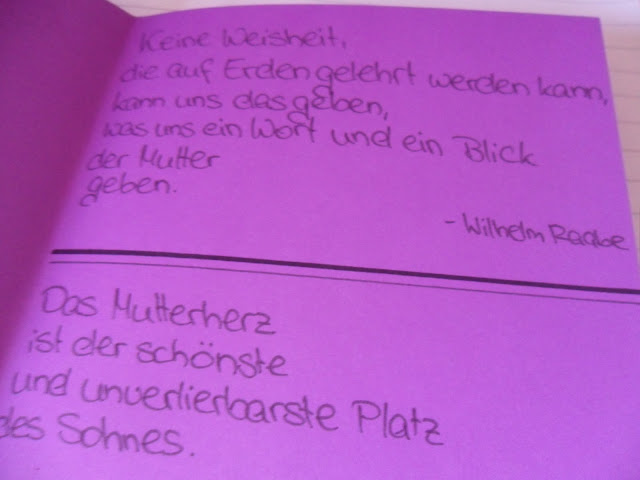 Keine Weisheit,
die auf Erden gelehrt werden kann,
kann uns das geben,
was uns ein Wort und ein Blick
der Mutter
geben.
- Wilhelm Raabe
Das Mutterherz
ist der schönste
und unverlierbarste Platz
des Sohnes.